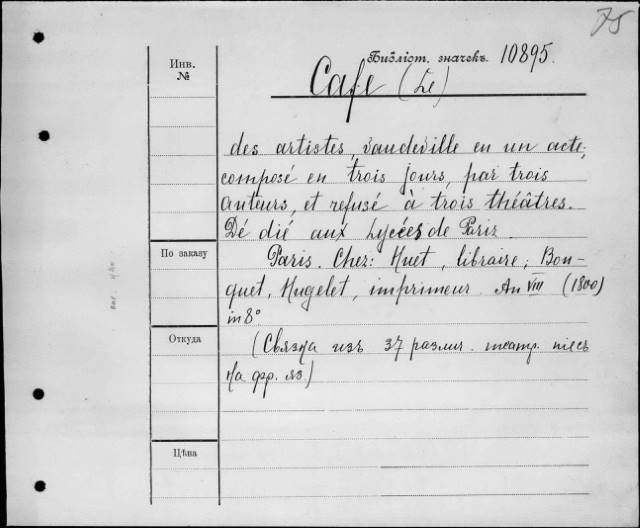 75
Инв.
№
Библіот. значекъ. 10895.
Cafe (Le)
des artistes, vaudeville en un acte,
composé en trois jours, par trois
auteurs, et refusé à trois théâtres.
Dé dié aux Lycées de Paris.
По заказу
Paris. Chez: Huet, libraire; Bon-
quet, Hugelet, imprimeur An VIII (1800)
in 8°
Откуда
(Связка изъ 37 различ. театр. пiесъ
на фр. яз.)
Цѣна